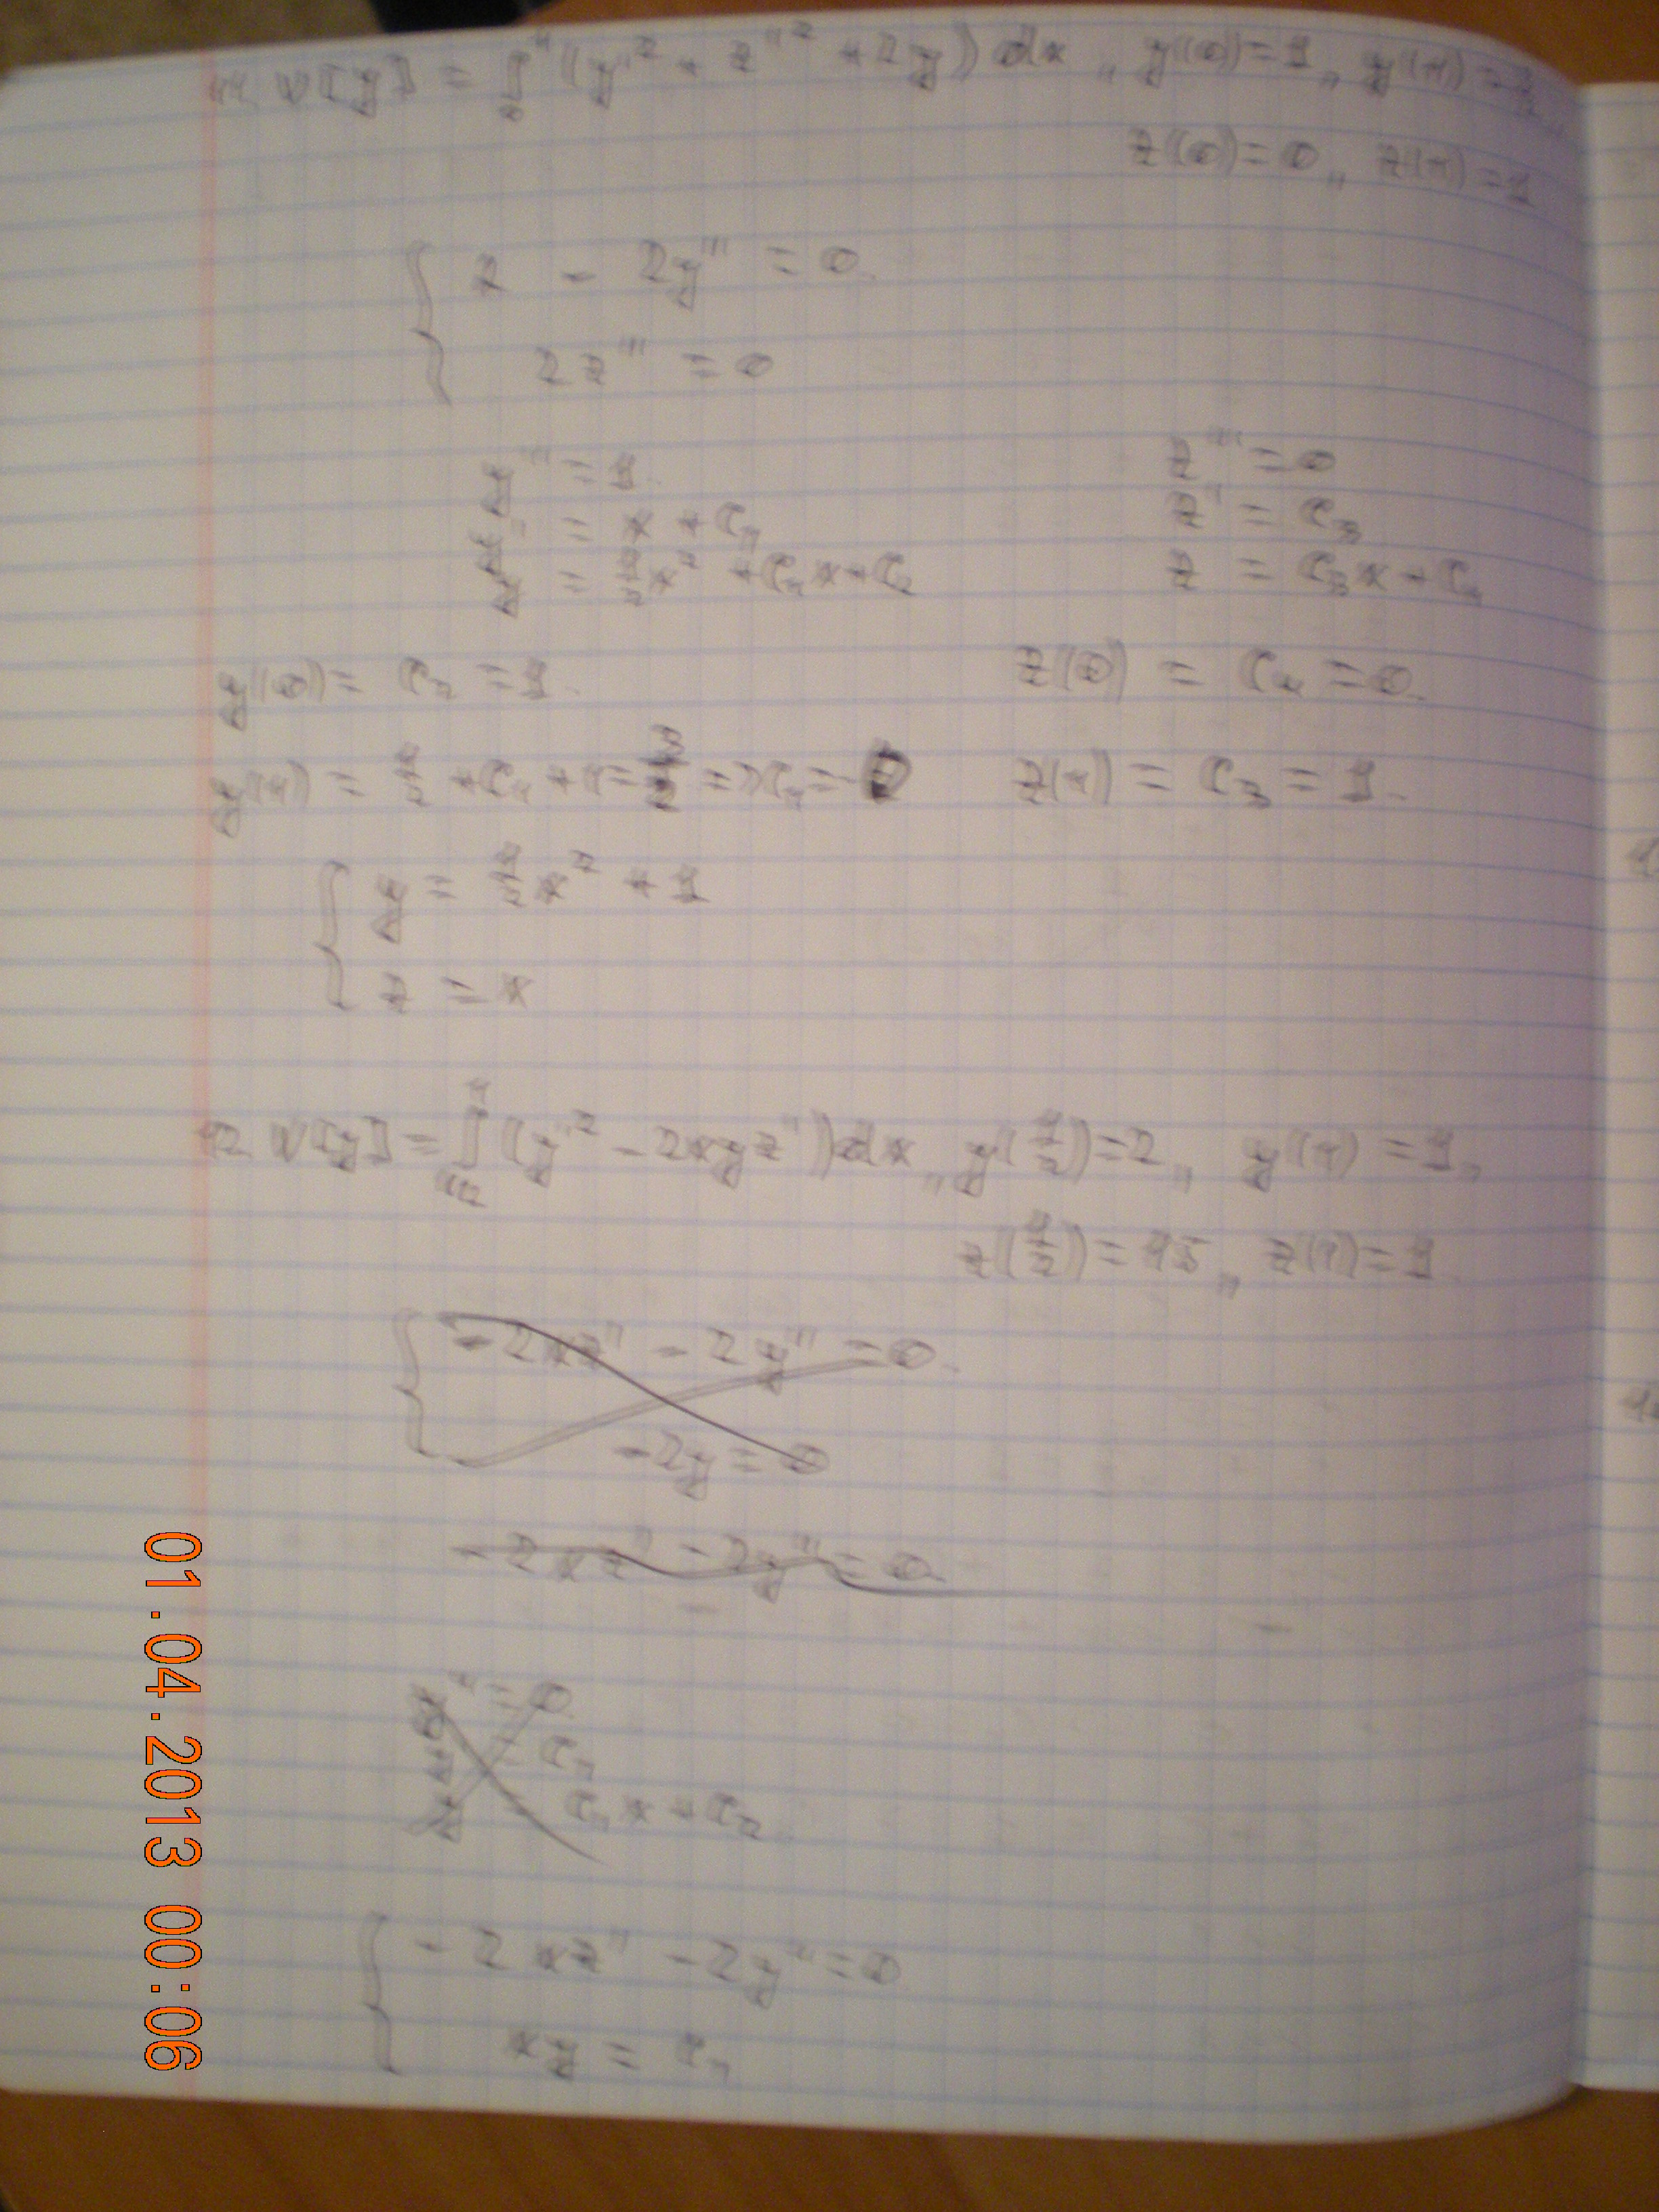 11. V[y] = ∫₀¹ (y'² + z'² + 2y) dx, y(0)=1, y(1)=3/2,
z(0)=0, z(1)=1
{ 2 - 2y'' = 0
2z'' = 0
y'' = 1 z'' = 0
y' = x + C₁ z' = C₃
y = 1/2 x² + C₁x + C₂ z = C₃x + C₄
y(0) = C₂ = 1. z(0) = C₄ = 0.
y(1) = 1/2 + C₁ + 1 = 3/2 => C₁ = 0 z(1) = C₃ = 1.
{ y = 1/2 x² + 1
z = x
12. V[y] = ∫ (y'² - 2xyz') dx, y(1/2)=2, y(1)=1,
z(1/2)=15, z(1)=1
{ -2xz' - 2y'' = 0.
-2y = 0
-2xz' - 2y'' = 0
y'' = 0
y' = C₁
y = C₁x + C₂
{ -2xz' - 2y'' = 0
xy = C₁
01.04.2013 00:06